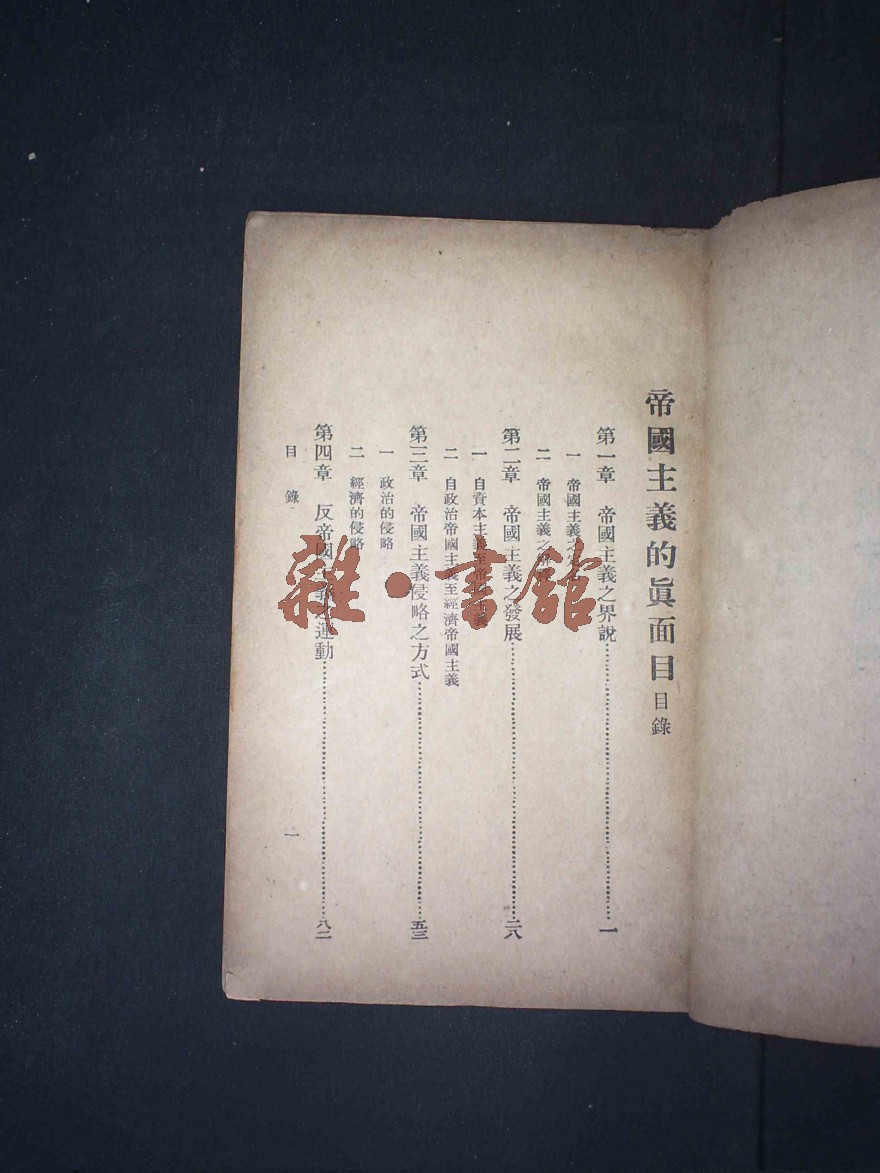 帝國主義的眞面目目錄
第一章 帝國主義之界說……一
一 帝國主義之
二 帝國主義之
第二章 帝國主義之發展……二八
一 自資本主義至帝國主義
二 自政治帝國主義至經濟帝國主義
第三章 帝國主義侵略之方式……五三
一 政治的侵略
二 經濟的侵略
第四章 反帝國主義之運動……八二
目錄
一
雜·書館